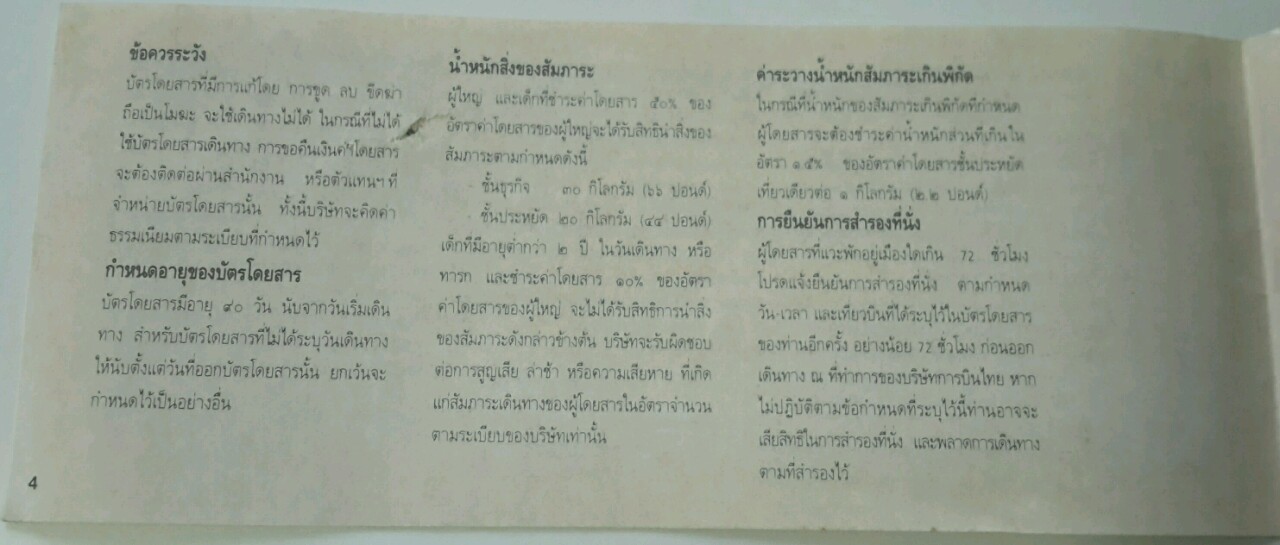 ข้อควรระวัง
บัตรโดยสารที่มีการแก้โดย การขูด ลบ ขีดฆ่า
ถือเป็นโมฆะ จะใช้เดินทางไม่ได้ ในกรณีที่ไม่ได้
ใช้บัตรโดยสารเดินทาง การขอคืนเงินค่าโดยสาร
จะต้องติดต่อผ่านสำนักงาน หรือตัวแทนฯ ที่
จำหน่ายบัตรโดยสารนั้น ทั้งนี้บริษัทจะคิดค่า
ธรรมเนียมตามระเบียบที่กำหนดไว้
กำหนดอายุของบัตรโดยสาร
บัตรโดยสารมีอายุ ๙๐ วัน นับจากวันเริ่มเดิน
ทาง สำหรับบัตรโดยสารที่ไม่ได้ระบุวันเดินทาง
ให้นับตั้งแต่วันที่ออกบัตรโดยสารนั้น ยกเว้นจะ
กำหนดไว้เป็นอย่างอื่น
น้ำหนักสิ่งของสัมภาระ
ผู้ใหญ่ และเด็กที่ชำระค่าโดยสาร ๕๐% ของ
อัตราค่าโดยสารของผู้ใหญ่จะได้รับสิทธินำสิ่งของ
สัมภาระตามกำหนดดังนี้
- ชั้นธุรกิจ ๓๐ กิโลกรัม (๖๖ ปอนด์)
- ชั้นประหยัด ๒๐ กิโลกรัม (๔๔ ปอนด์)
เด็กที่มีอายุต่ำกว่า ๒ ปี ในวันเดินทาง หรือ
ทารก และชำระค่าโดยสาร ๑๐% ของอัตรา
ค่าโดยสารของผู้ใหญ่ จะไม่ได้รับสิทธิการนำสิ่ง
ของสัมภาระดังกล่าวข้างต้น บริษัทจะรับผิดชอบ
ต่อการสูญเสีย ล่าช้า หรือความเสียหาย ที่เกิด
แก่สัมภาระเดินทางของผู้โดยสารในอัตราจำนวน
ตามระเบียบของบริษัทเท่านั้น
ค่าระวางน้ำหนักสัมภาระเกินพิกัด
ในกรณีที่น้ำหนักของสัมภาระเกินพิกัดที่กำหนด
ผู้โดยสารจะต้องชำระค่าน้ำหนักส่วนที่เกินใน
อัตรา ๑.๕% ของอัตราค่าโดยสารชั้นประหยัด
เที่ยวเดียวต่อ ๑ กิโลกรัม (๒.๒ ปอนด์)
การยืนยันการสำรองที่นั่ง
ผู้โดยสารที่แวะพักอยู่เมืองใดเกิน 72 ชั่วโมง
โปรดแจ้งยืนยันการสำรองที่นั่ง ตามกำหนด
วัน-เวลา และเที่ยวบินที่ได้ระบุไว้ในบัตรโดยสาร
ของท่านอีกครั้ง อย่างน้อย 72 ชั่วโมง ก่อนออก
เดินทาง ณ ที่ทำการของบริษัทการบินไทย หาก
ไม่ปฏิบัติตามข้อกำหนดที่ระบุไว้นี้ท่านอาจจะ
เสียสิทธิในการสำรองที่นั่ง และพลาดการเดินทาง
ตามที่สำรองไว้
4